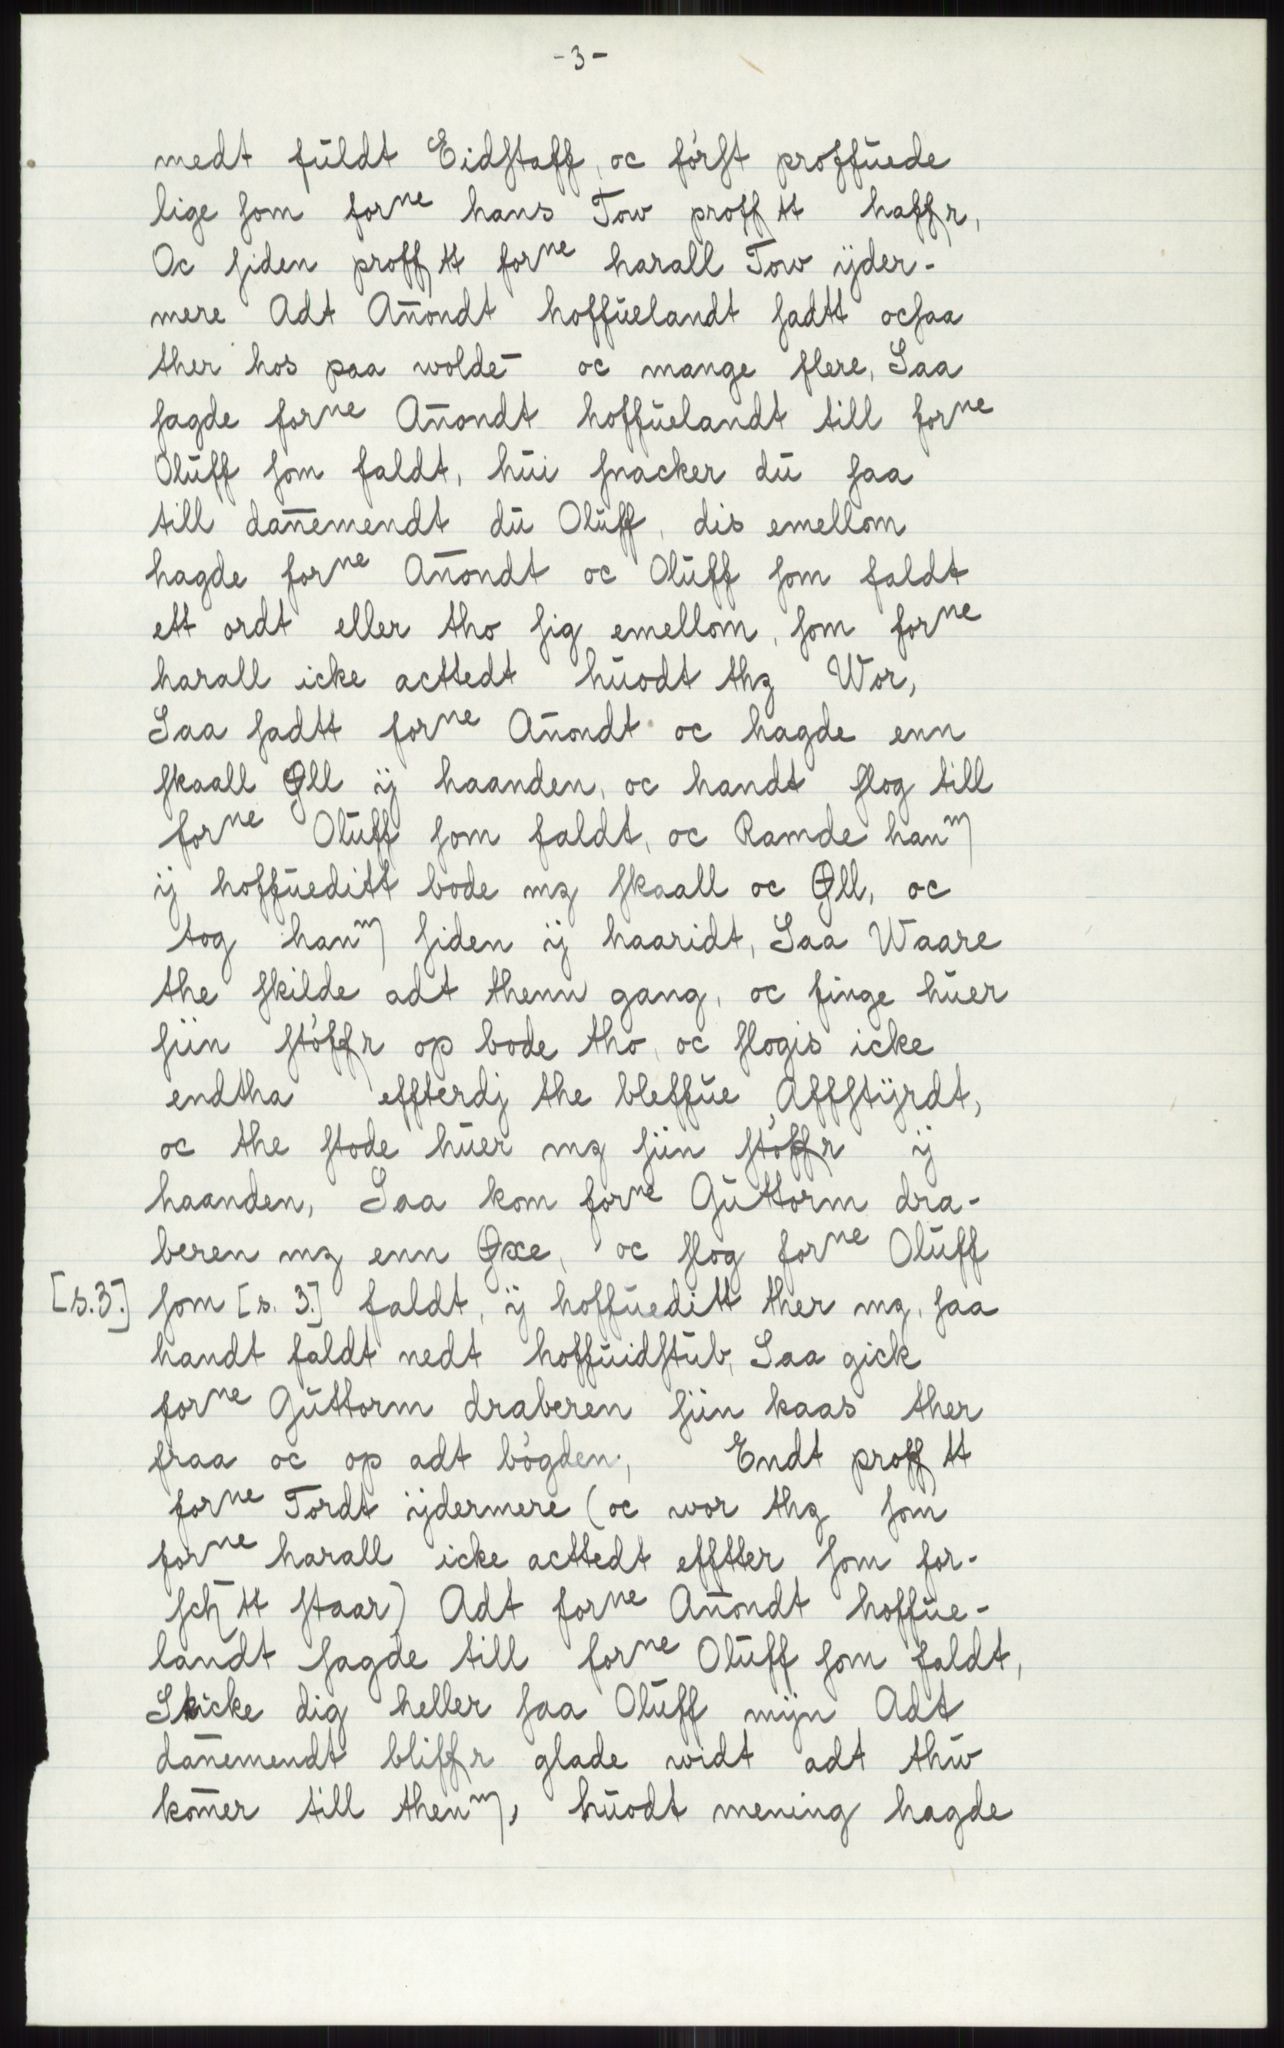 -3-
medt fuldt Eidstaff, oc först proffuede
lige som forne hans Tow proff tt haffr,
Oc siden proff tt forne harall Tow ijder-
mere Adt Anondt hoffuelandt sadtt ocsaa
ther hos paa wolde oc mange flere, Saa
sagde forne Anondt hoffuelandt till forne
Oluff som faldt, hui snacker du saa
till danemendt du Oluff, dis emellom
hagde forne Anondt oc Oluff som faldt
ett ordt eller tho sig emellom, som forne
harall icke acttedt huodt thz Wor,
Saa sadtt forne Anondt oc hagde enn
skaall Øll ij haanden, oc handt slog till
forne Oluff som faldt, oc Ramde hanm
ij hoffueditt bode mz skaall oc Øll, oc
tog hanm siden ij haaridt, Saa Waare
the skilde adt thenn gang, oc finge huer
siin stöffr op bode tho, oc slogis icke
endtha effterdj the bleffue Affstijrdt,
oc the stode huer mz siin stöffr ij
haanden, Saa kom forne Guttorm dra-
beren mz enn Øxe, oc slog forne Oluff
[s.3.] som [s. 3.] faldt, ij hoffueditt ther mz, saa
handt faldt nedt hoffuidstub, Saa gick
forne Guttorm draberen siin kaas ther
fraa oc op adt bögden, Endt proff tt
forne Tordt ijdermere (oc wor thz som
forne harall icke acttedt efftter som for-
sch tt staar) Adt forne Anondt hoffue-
landt sagde till forne Oluff som faldt,
Skicke dig heller saa Oluff mijn Adt
danemendt bliffr glade widt adt thuv
komer till thenm, huodt mening hagde